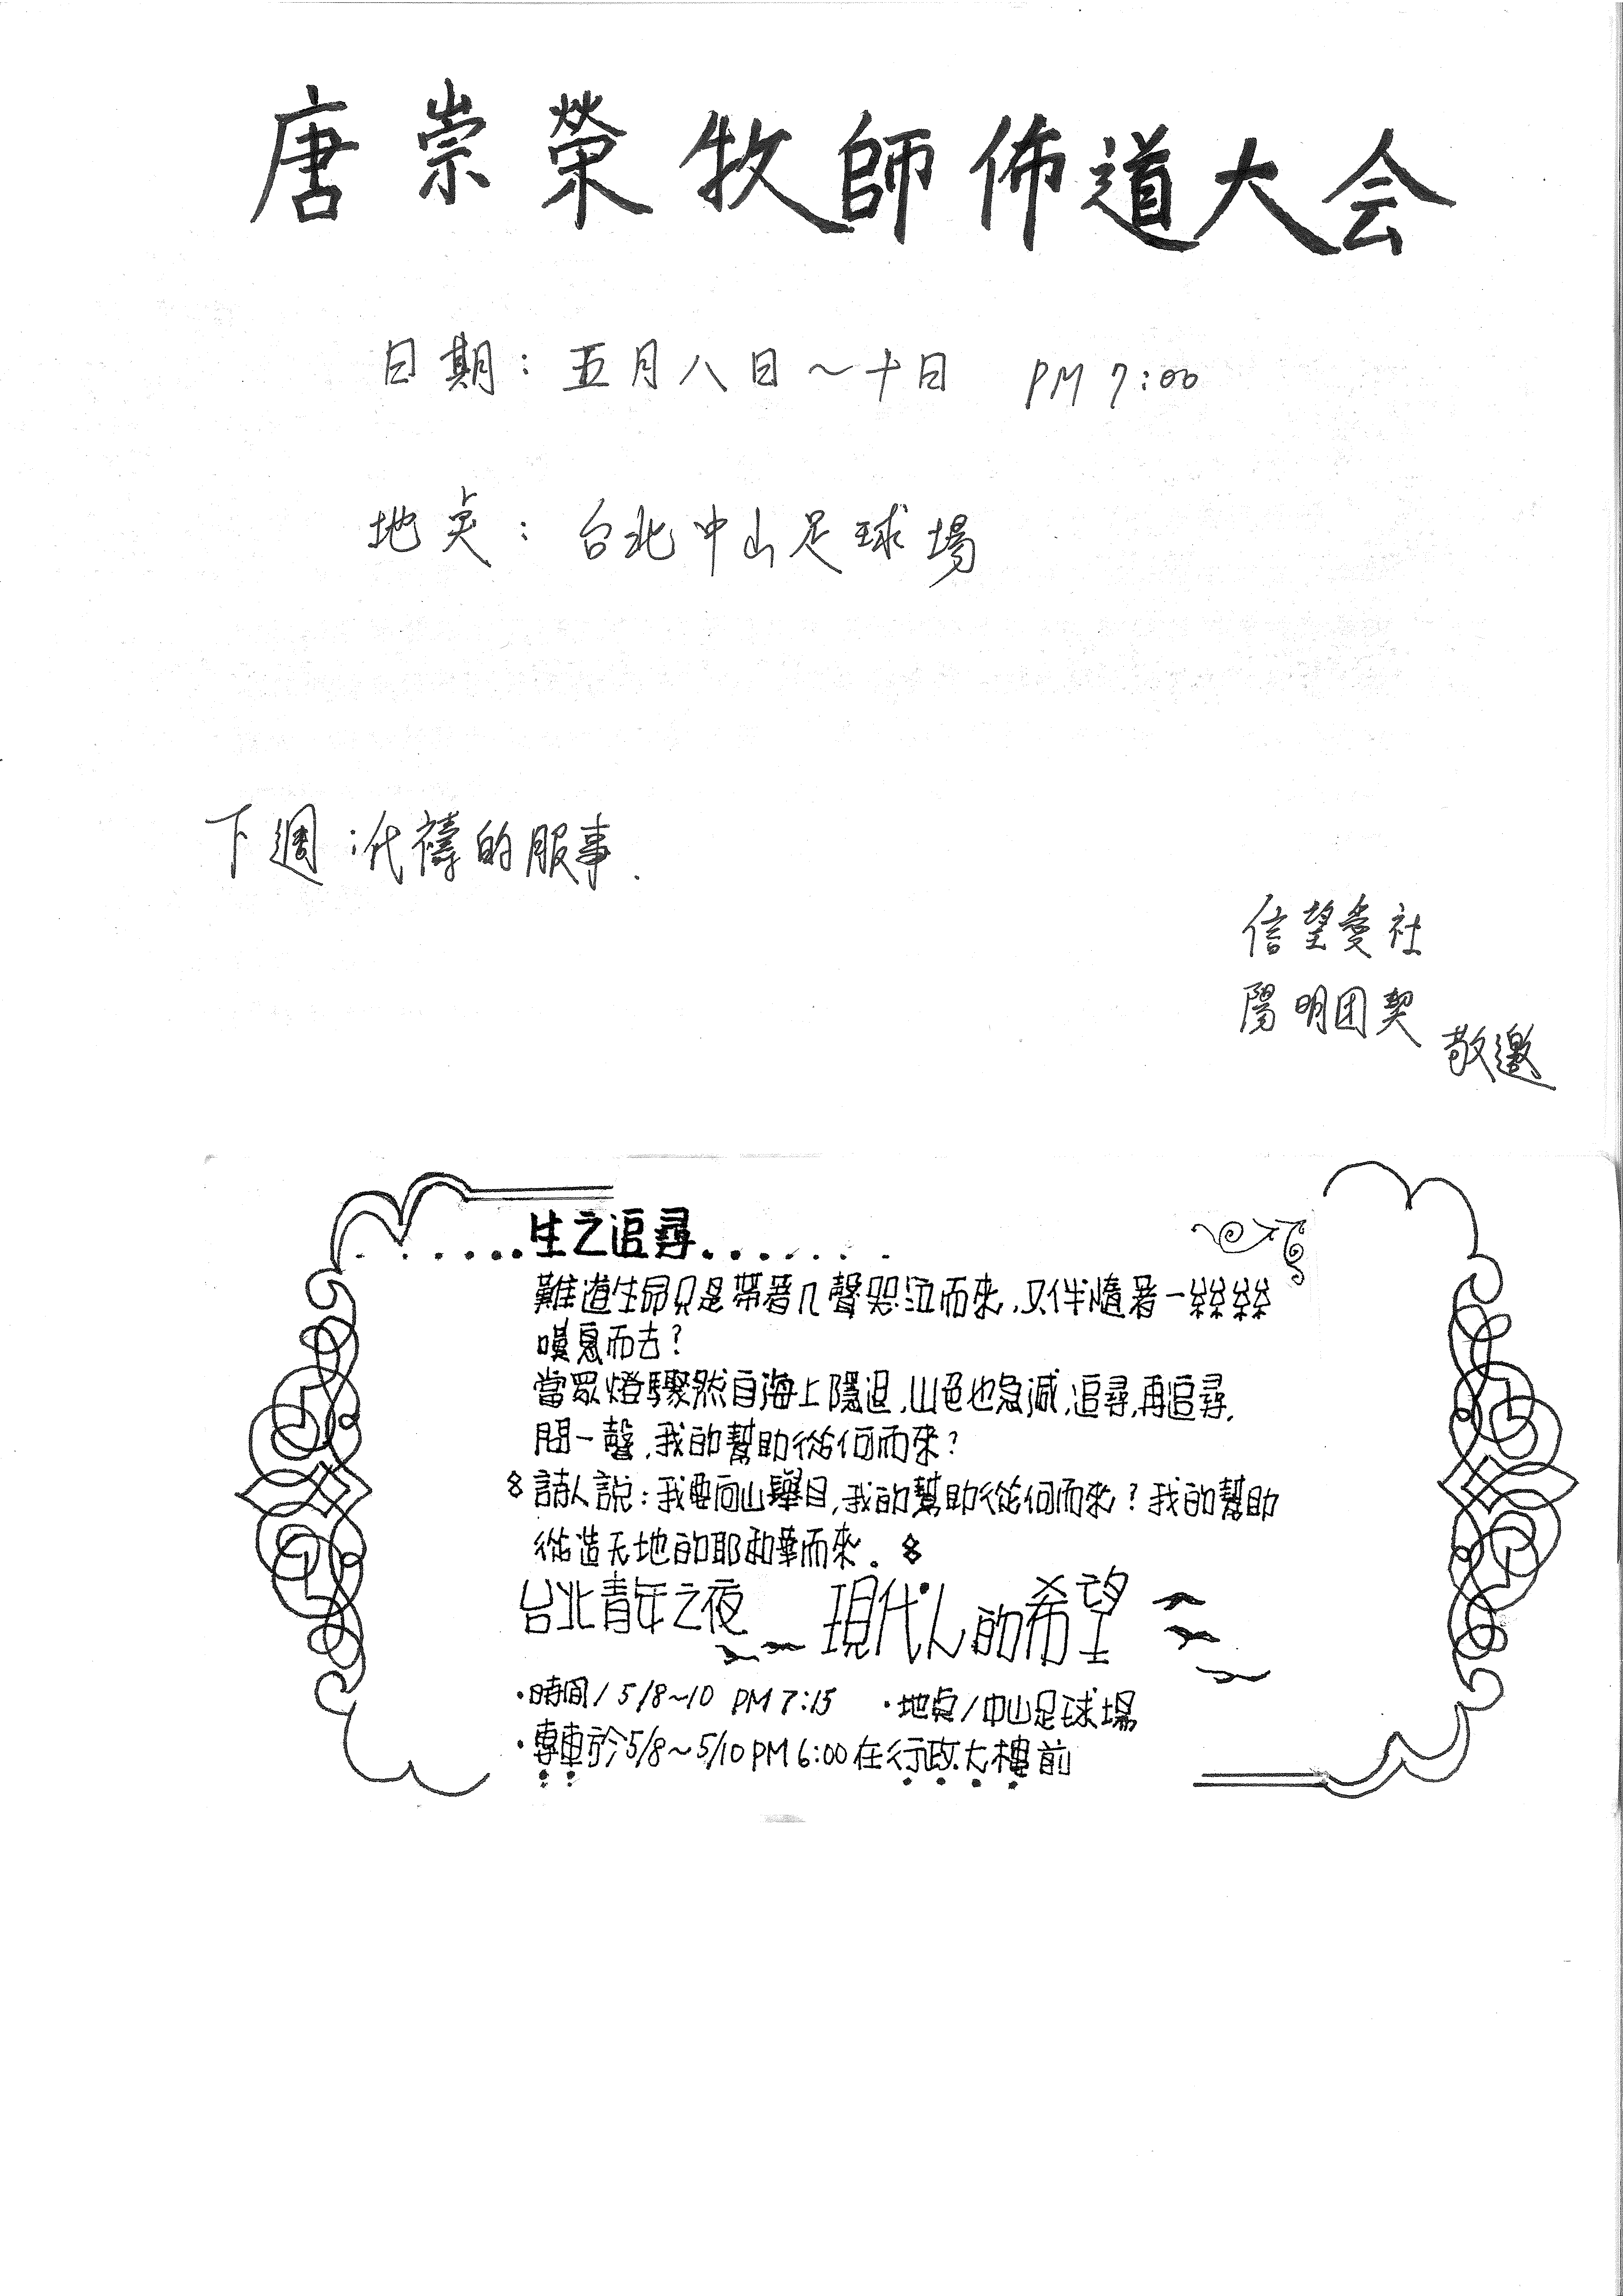 唐崇榮牧師佈道大会
日期：五月八日～十日 PM 7:00
地点：台北中山足球場
下週：代禱的服事.
信望愛社
陽明团契
敬邀
......生之追尋.......
難道生命只是帶著几聲哭泣而來，又伴隨著一絲絲
嘆息而去？
當眾燈驟然自海上隱退，山色也急減，追尋，再追尋，
問一聲，我的幫助從何而來？
詩人說：我要向山舉目，我的幫助從何而來？我的幫助
從造天地的耶和華而來。
台北青年之夜 現代人的希望
·時間/5/8~10 PM 7:15 ·地貞/中山足球場
·專車於5/8~5/10 PM 6:00在行政大樓前